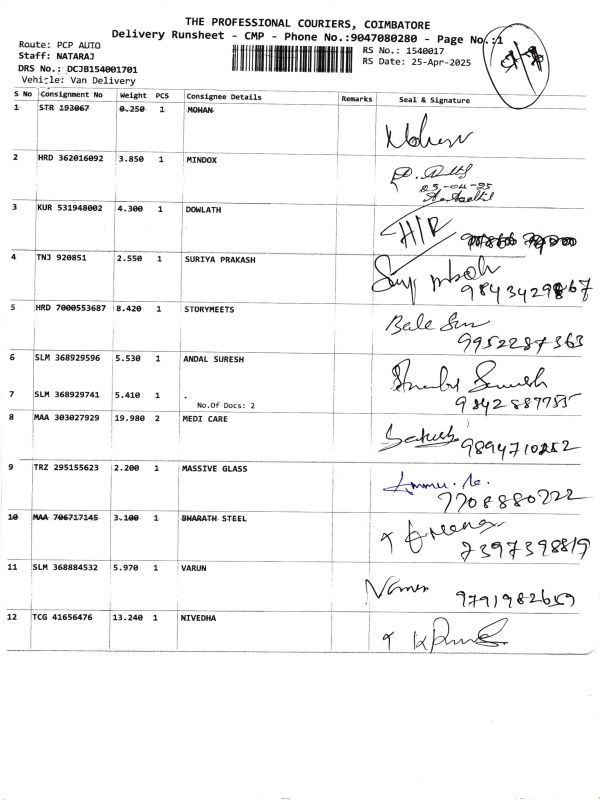 THE PROFESSIONAL COURIERS, COIMBATORE
Delivery Runsheet - CMP - Phone No.:9047080280 - Page No.:1
Route: PCP AUTO
Staff: NATARAJ
DRS No.: DCJB154001701
Vehicle: Van Delivery
RS No.: 1540017
RS Date: 25-Apr-2025
S No Consignment No Weight PCS Consignee Details Remarks Seal & Signature
1 STR 193067 0.250 1 MOHAN
Mohan
2 HRD 362016092 3.850 1 MINDOX
3 KUR 531948002 4.300 1 DOWLATH
H/R
4 TNJ 920851 2.550 1 SURIYA PRAKASH
5 HRD 7000553687 8.420 1 STORYMEETS
9952287363
6 SLM 368929596 5.530 1 ANDAL SURESH
7 SLM 368929741 5.410 1 .
No.Of Docs: 2
9842887755
8 MAA 303027929 19.980 2 MEDI CARE
9894710252
9 TRZ 295155623 2.200 1 MASSIVE GLASS
7708880222
10 MAA 706717145 3.100 1 BHARATH STEEL
7397398819
11 SLM 368884532 5.970 1 VARUN
9791982659
12 TCG 41656476 13.240 1 NIVEDHA